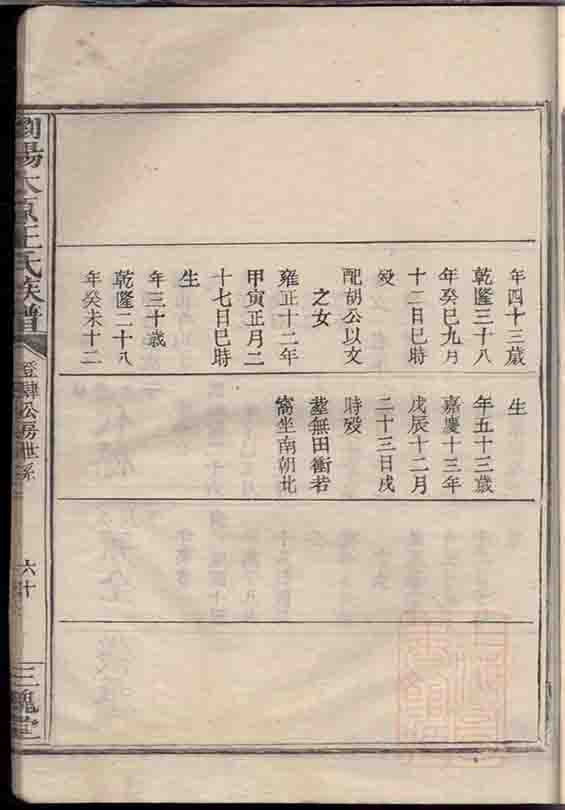 年四十三歲
乾隆三十八
年癸巳九月
十二日巳時
殁
配胡公以文
之女
雍正十二年
甲寅正月二
十七日巳時
生
年三十歲
乾隆二十八
年癸未十二
生
年五十三歲
嘉慶十三年
戊辰十二月
二十三日戌
時殁
塟無田衝若
窩坐南朝北
瀏陽太原王氏族譜
登肆公房世系
六十
三槐堂